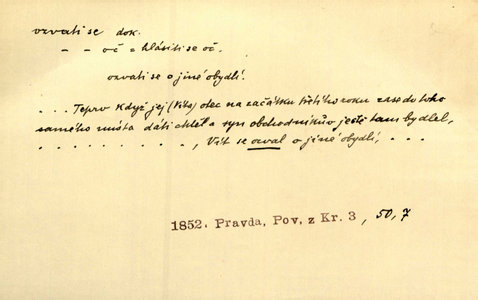 ozvati se dok.
– – oč = hlásiti se oč.
ozvati se o jiné obydlí.
. . . Teprv když jej (Víta) otec na začátku třetího roku zase do toho
samého místa dáti chtěl a syn obchodníkův ještě tam bydlel,
. . . . . . . . . , Vít se ozval o jiné obydlí, . . .
1852. Pravda, Pov. z Kr. 3, 50, 7